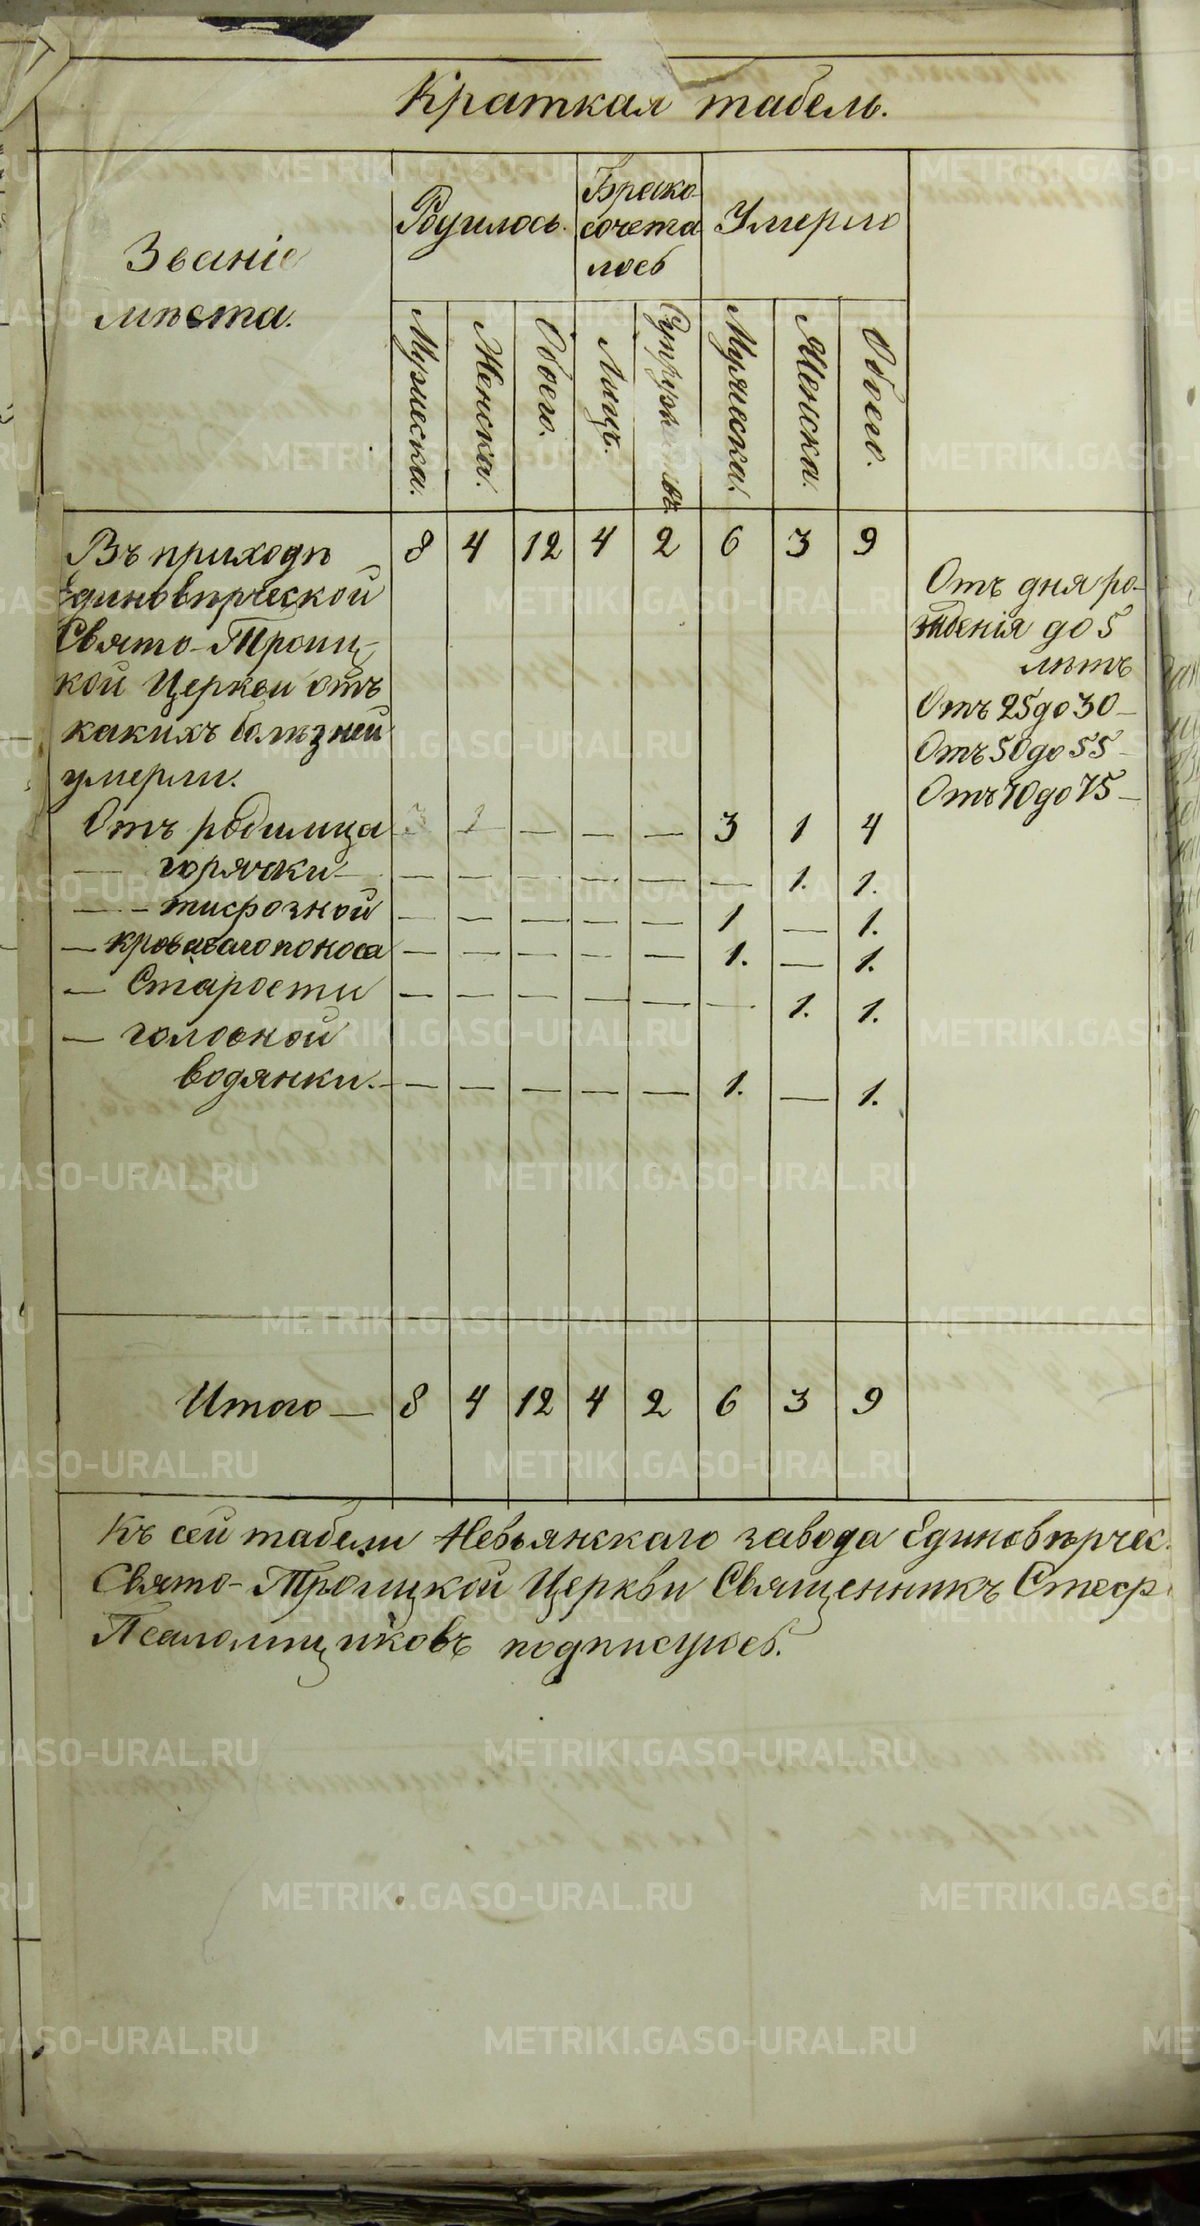 Краткая табель.
Званіе
мѣста.
Родилось.
Брако
сочета
лось
Умерло
Мужеска.
Женска.
Обоего.
Лицъ.
Супружествъ.
Мужеска.
Женска.
Обоего.
Въ приходѣ 8 4 12 4 2 6 3 9
Единовѣрческой
Свято-Троиц-
кой Церкви отъ
какихъ болѣзней
умерли.
Отъ дня ро-
жденія до 5
лѣтъ
Отъ 25 до 30 —
Отъ 50 до 55 —
Отъ 70 до 75 —
Отъ родимца — — — 3 1 4
— горячки — — — — — — — 1. 1.
— — тифозной — — — — — 1 — 1.
— кроваваго поноса — — — — — 1. — 1.
— Старости — — — — — — 1. 1.
— головной
водянки. — — — — — — 1. — 1.
Итого — 8 4 12 4 2 6 3 9
Къ сей табели Невьянскаго завода Единовѣрчес.
Свято-Троицкой Церкви Священникъ Стеф
Псаломщиковъ подписуюсь.
METRIKI.GASO-URAL.RU